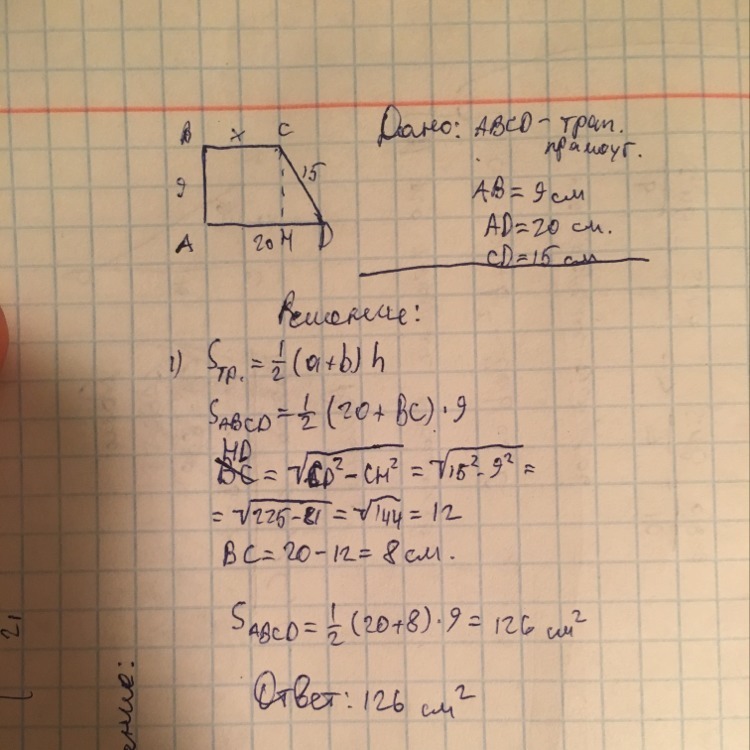 B x C
9 15
A 20 H D
Дано: ABCD - трап.
прямоуг.
AB = 9 см
AD = 20 см.
CD = 15 см
Решение:
1) Sтр. = 1/2 (a+b) h
SABCD = 1/2 (20 + BC) · 9
HD = √(CD² - CH²) = √(15² - 9²) =
= √(225 - 81) = √144 = 12
BC = 20 - 12 = 8 см.
SABCD = 1/2 (20+8) · 9 = 126 см²
Ответ: 126 см²
21
ение: